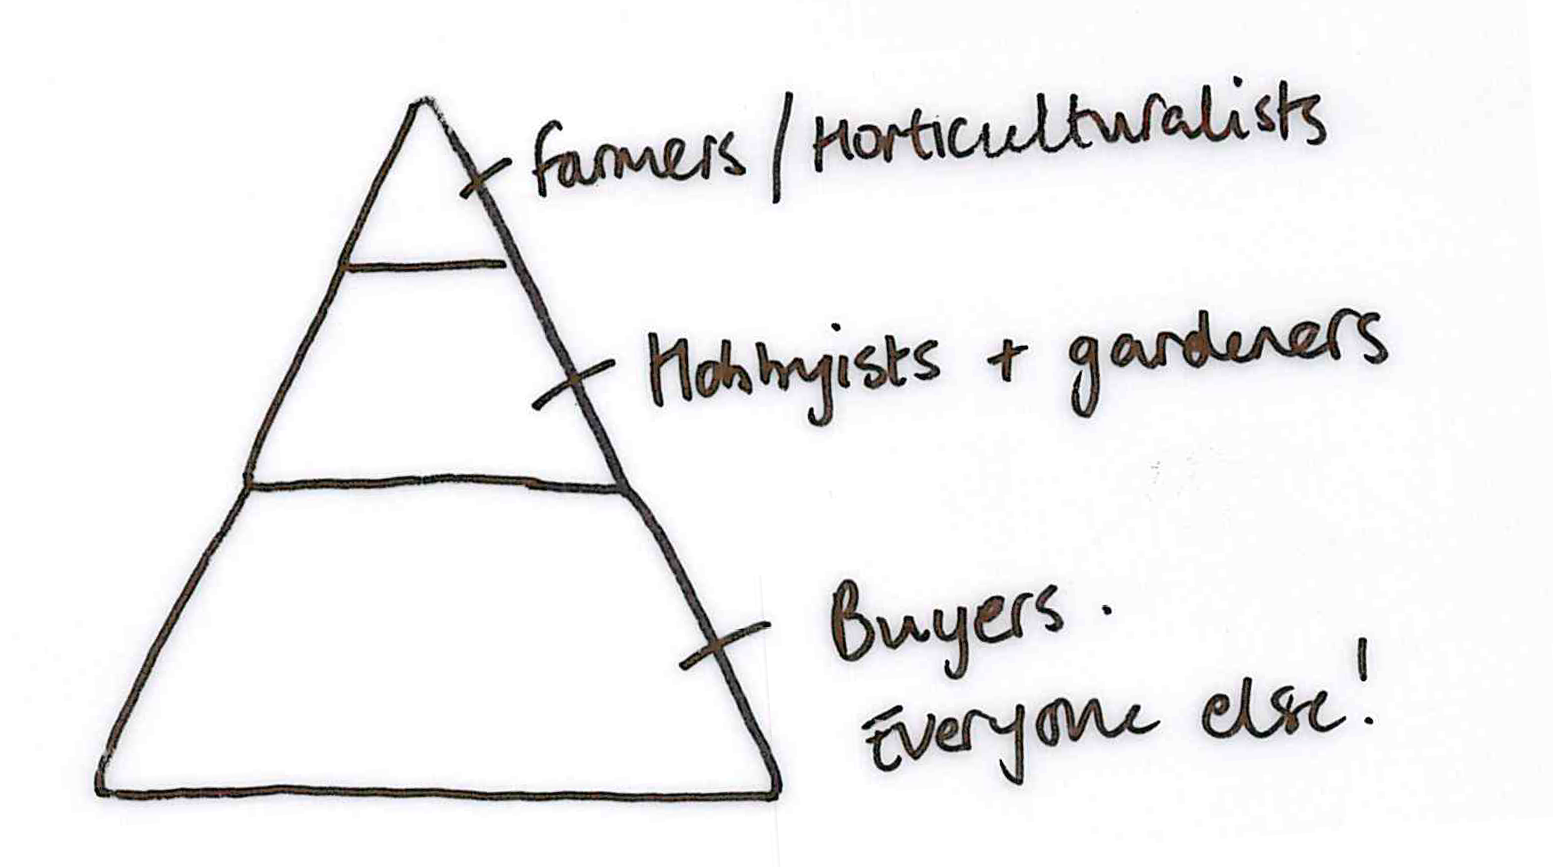 farmers / Horticulturalists
Hobbyists + gardeners
Buyers.
Everyone else!